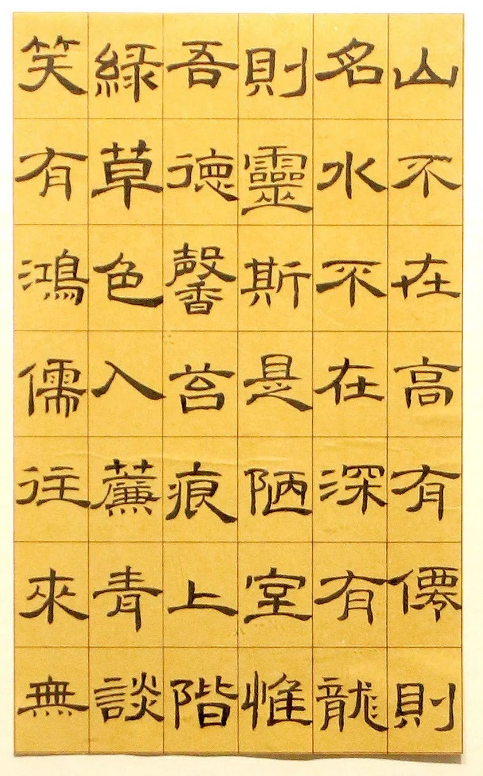 山不在高有僊則
名水不在深有龍
則靈斯是陋室惟
吾德馨苔痕上階
緑草色入薕青談
笑有鴻儒往來無